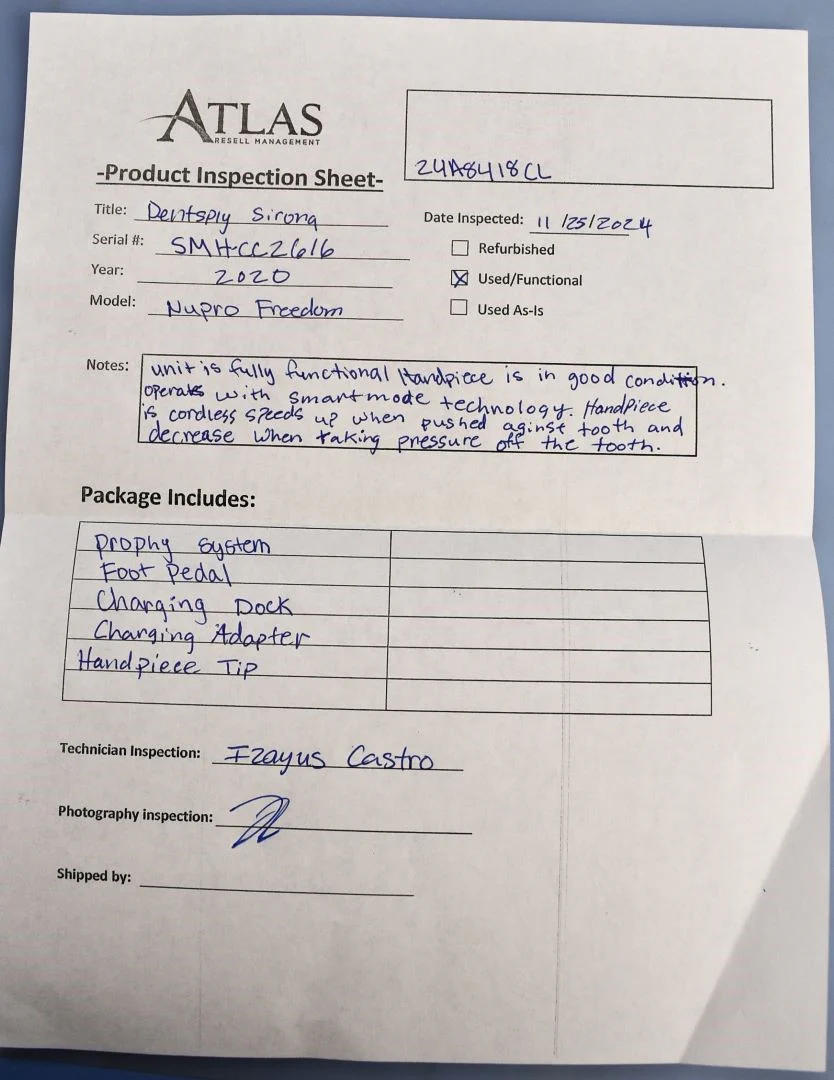 ATLAS
RESELL MANAGEMENT
24A8418CL
-Product Inspection Sheet-
Title: Dentsply Sirona
Date Inspected: 11/25/2024
Serial #: SMHCC2616
Refurbished
Year: 2020
Used/Functional
Model: Nupro Freedom
Used As-Is
Notes: unit is fully functional Handpiece is in good condition.
operates with smartmode technology. HandPiece
is cordless speeds up when pushed aginst tooth and
decrease when taking pressure off the tooth.
Package Includes:
Prophy System
Foot Pedal
Charging Dock
Charging Adapter
Handpiece Tip
Technician Inspection: Izayus Castro
Photography inspection:
Shipped by: